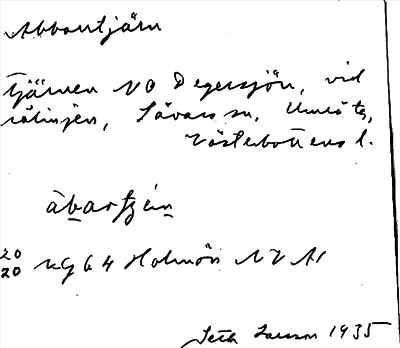 Abborrtjärn
Tjärnen NO Degersjön, vid
rålinjen, Sävars sn, Umeå ts,
Västerbottens l.
ābartjēn
20
20 KG 64 Holmön NV A1
Seth Larsson 1935